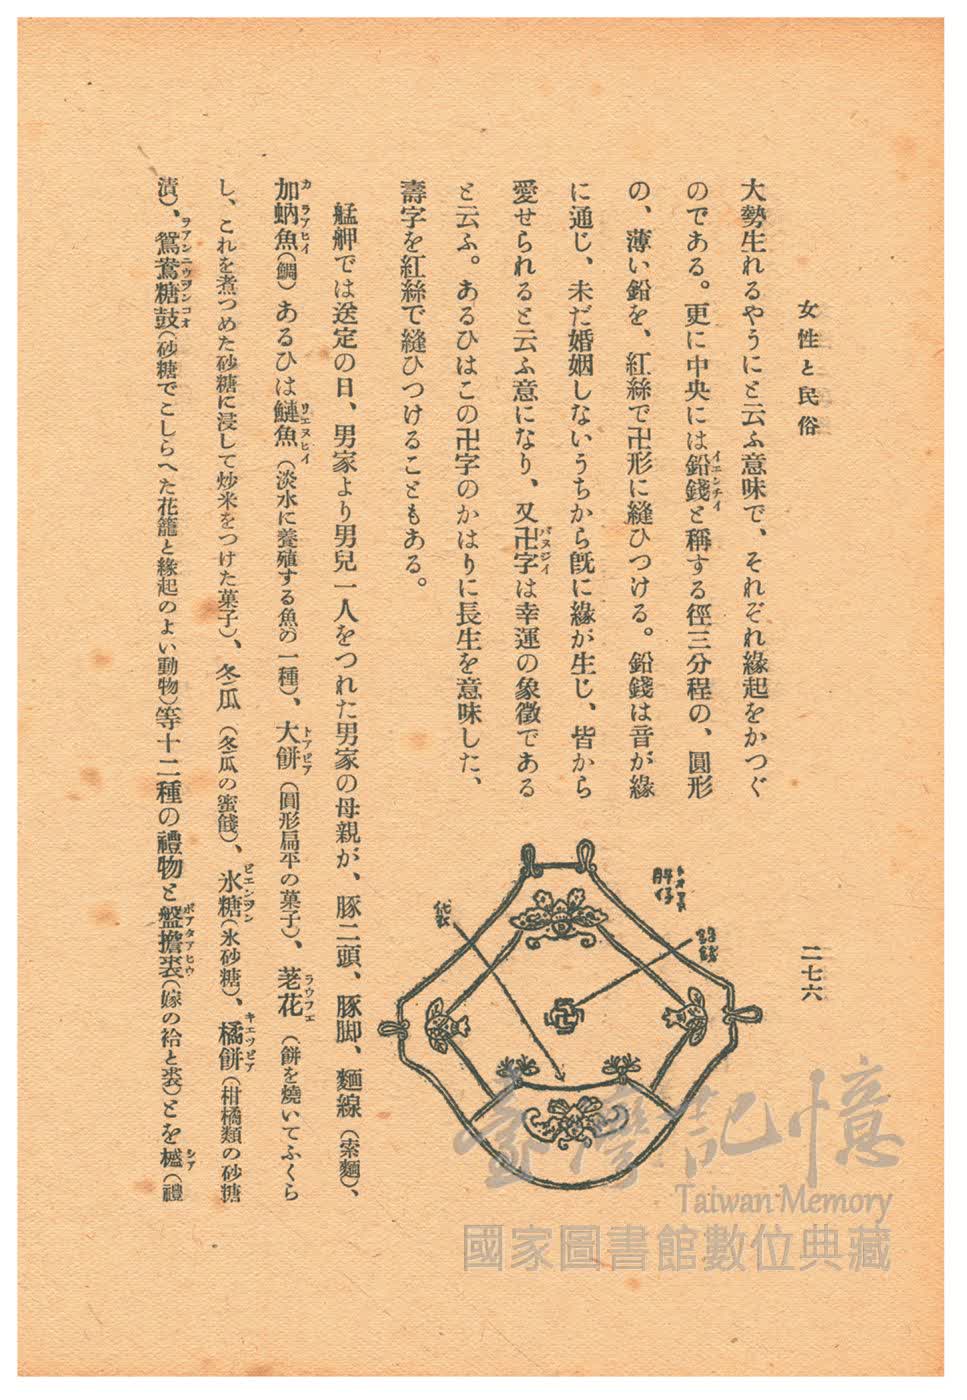 女性と民俗
二七六
大勢生れるやうにと云ふ意味で、それぞれ緣起をかつぐ
のである。更に中央には鉛錢と稱する徑三分程の、圓形
イエンチイ
の、薄い鉛を、紅絲で卍形に縫ひつける。鉛錢は音が緣
に通じ、未だ婚姻しないうちから旣に緣が生じ、皆から
愛せられると云ふ意になり、又卍字は幸運の象徵である
バヌジイ
と云ふ。あるひはこの卍字のかはりに長生を意味した、
壽字を紅絲で縫ひつけることもある。
鉛錢
袋
艋舺では送定の日、男家より男兒一人をつれた男家の母親が、豚二頭、豚脚、麵線（索麵）、
加蚋魚（鯛）あるひは鰱魚（淡水に養殖する魚の一種）、大餅（圓形扁平の菓子）、荖花（餅を燒いてふくら
カラアヒイ
リエヌヒイ
トアピア
ラウフエ
し、これを煮つめた砂糖に浸して炒米をつけた菓子）、冬瓜（冬瓜の蜜餞）、氷糖（氷砂糖）、橘餅（柑橘類の砂糖
ピエンヲン
キエツピア
漬）、鴛鴦糖鼓（砂糖でこしらへた花籠と緣起のよい動物）等十二種の禮物と盤擔裘（嫁の袷と裘）とを槭（禮
ヲアンニウヲンコオ
ボアタアヒウ
シア
臺灣記憶
Taiwan Memory
國家圖書館數位典藏